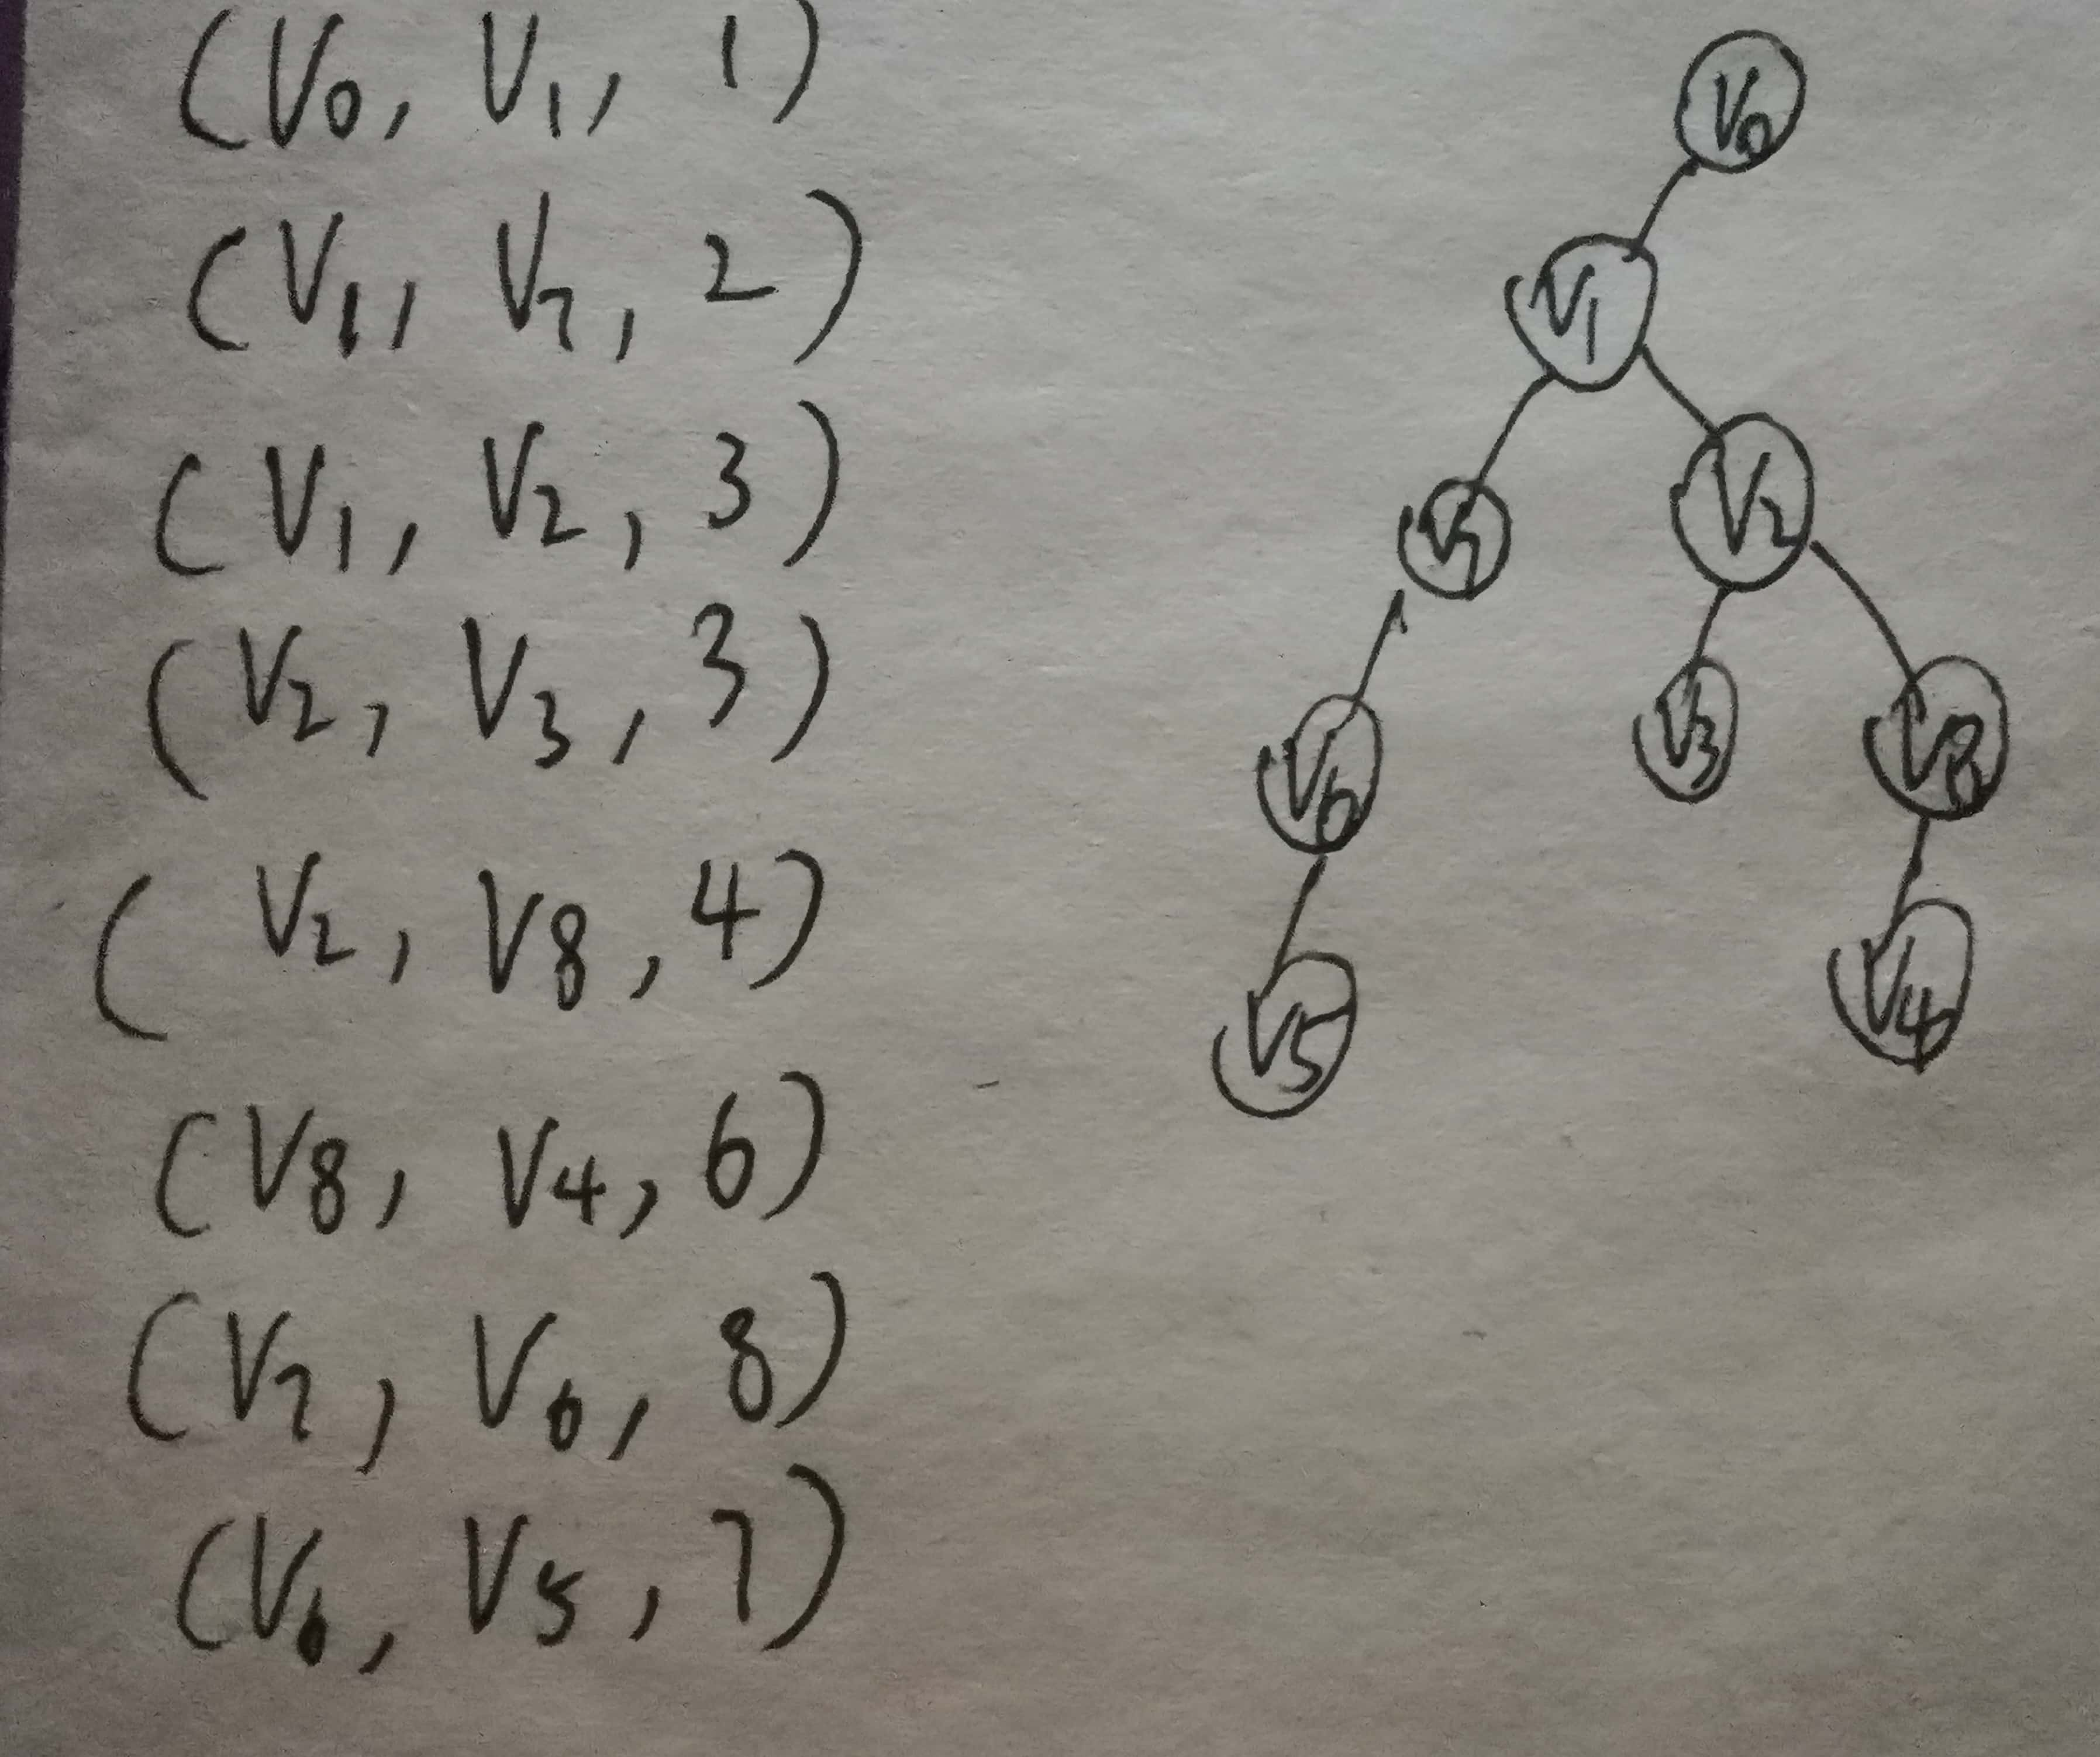 (V0, V1, 1)
(V1, V7, 2)
(V1, V2, 3)
(V2, V3, 3)
(V2, V8, 4)
(V8, V4, 6)
(V7, V6, 8)
(V6, V5, 7)
V0
V1
V7 V2
V6 V3 V8
V5 V4